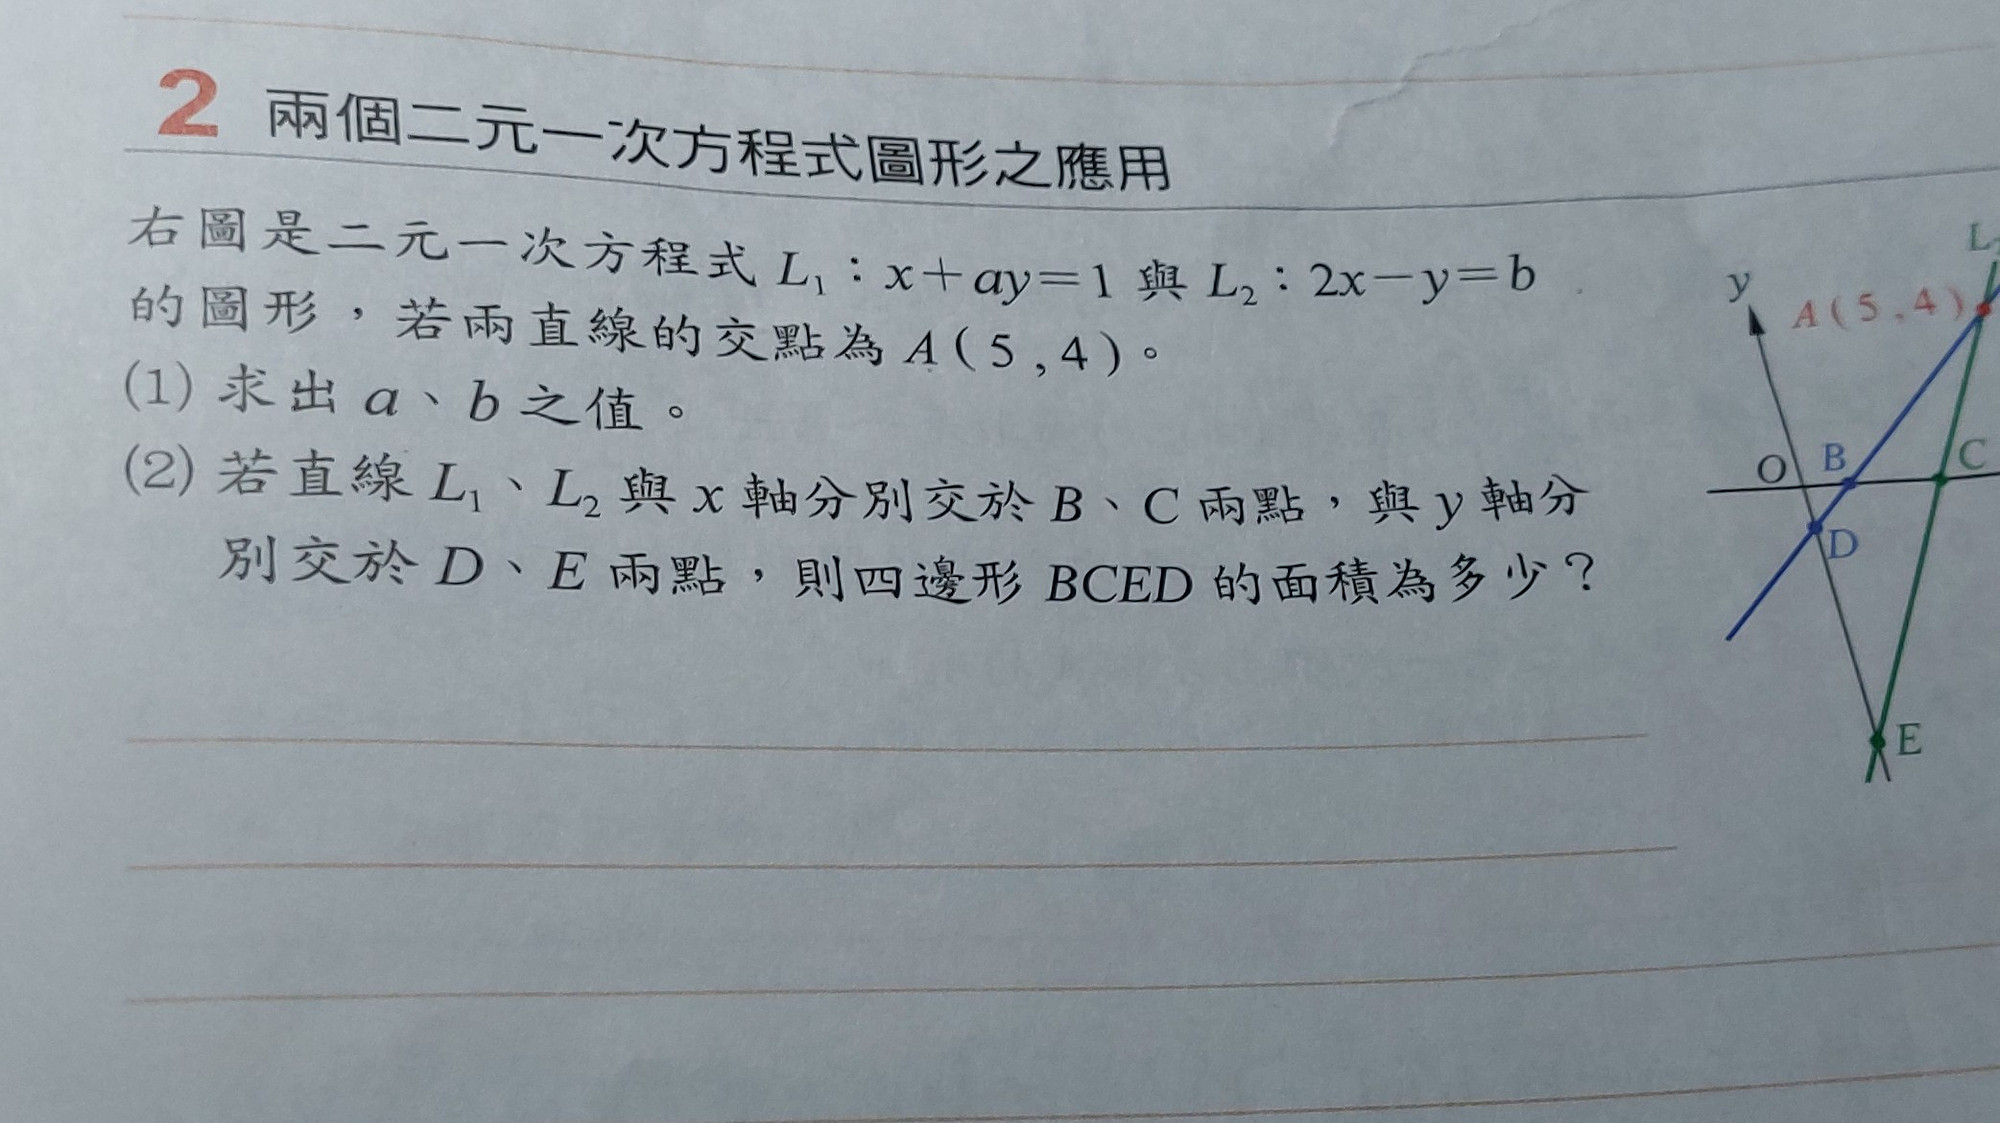 2 兩個二元一次方程式圖形之應用
右圖是二元一次方程式 L₁：x＋ay＝1 與 L₂：2x－y＝b
的圖形，若兩直線的交點為 A( 5 , 4 )。
(1) 求出 a、b 之值。
(2) 若直線 L₁、L₂ 與 x 軸分別交於 B、C 兩點，與 y 軸分
別交於 D、E 兩點，則四邊形 BCED 的面積為多少？
L₂
y
A( 5 , 4 )
O
B
C
D
E